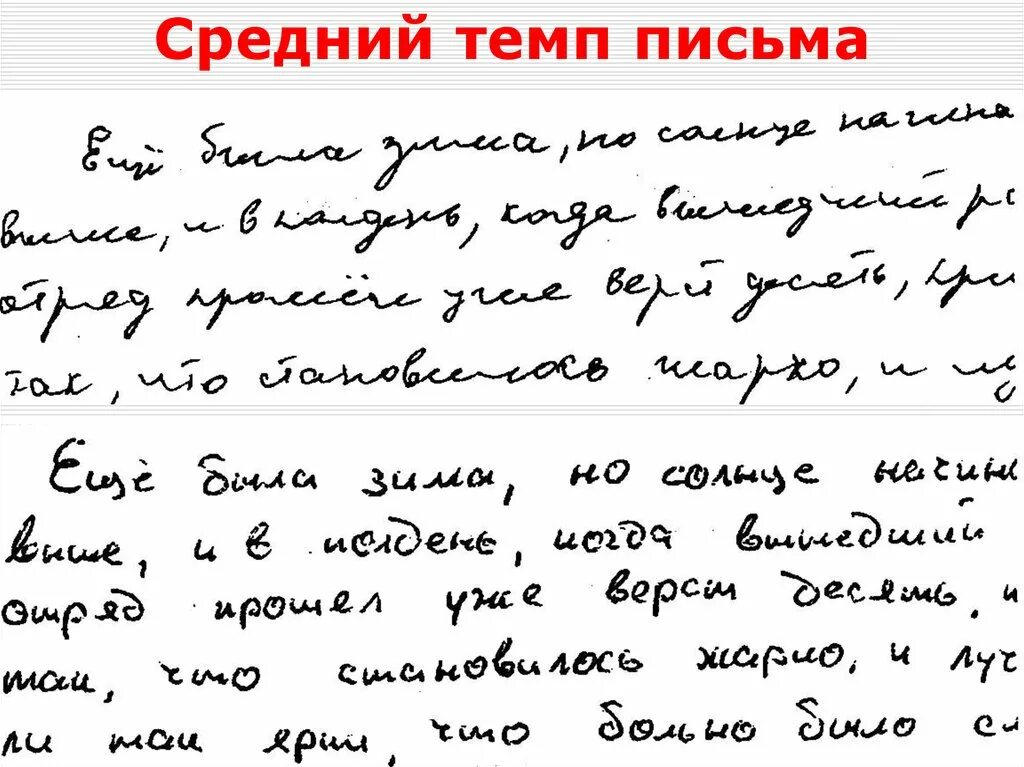 Средний темп письма
Ещё была зима, но солнце начина
выше, и в полдень, когда вышедший ра
отряд прошёл уже верст десять, при
так, что становилось жарко, и лу
Ещё была зима, но солнце начин
выше, и в полдень, когда вышедший
отряд прошел уже верст десять, и
так, что становилось жарко, и луч
ли так ярки, что больно было сл